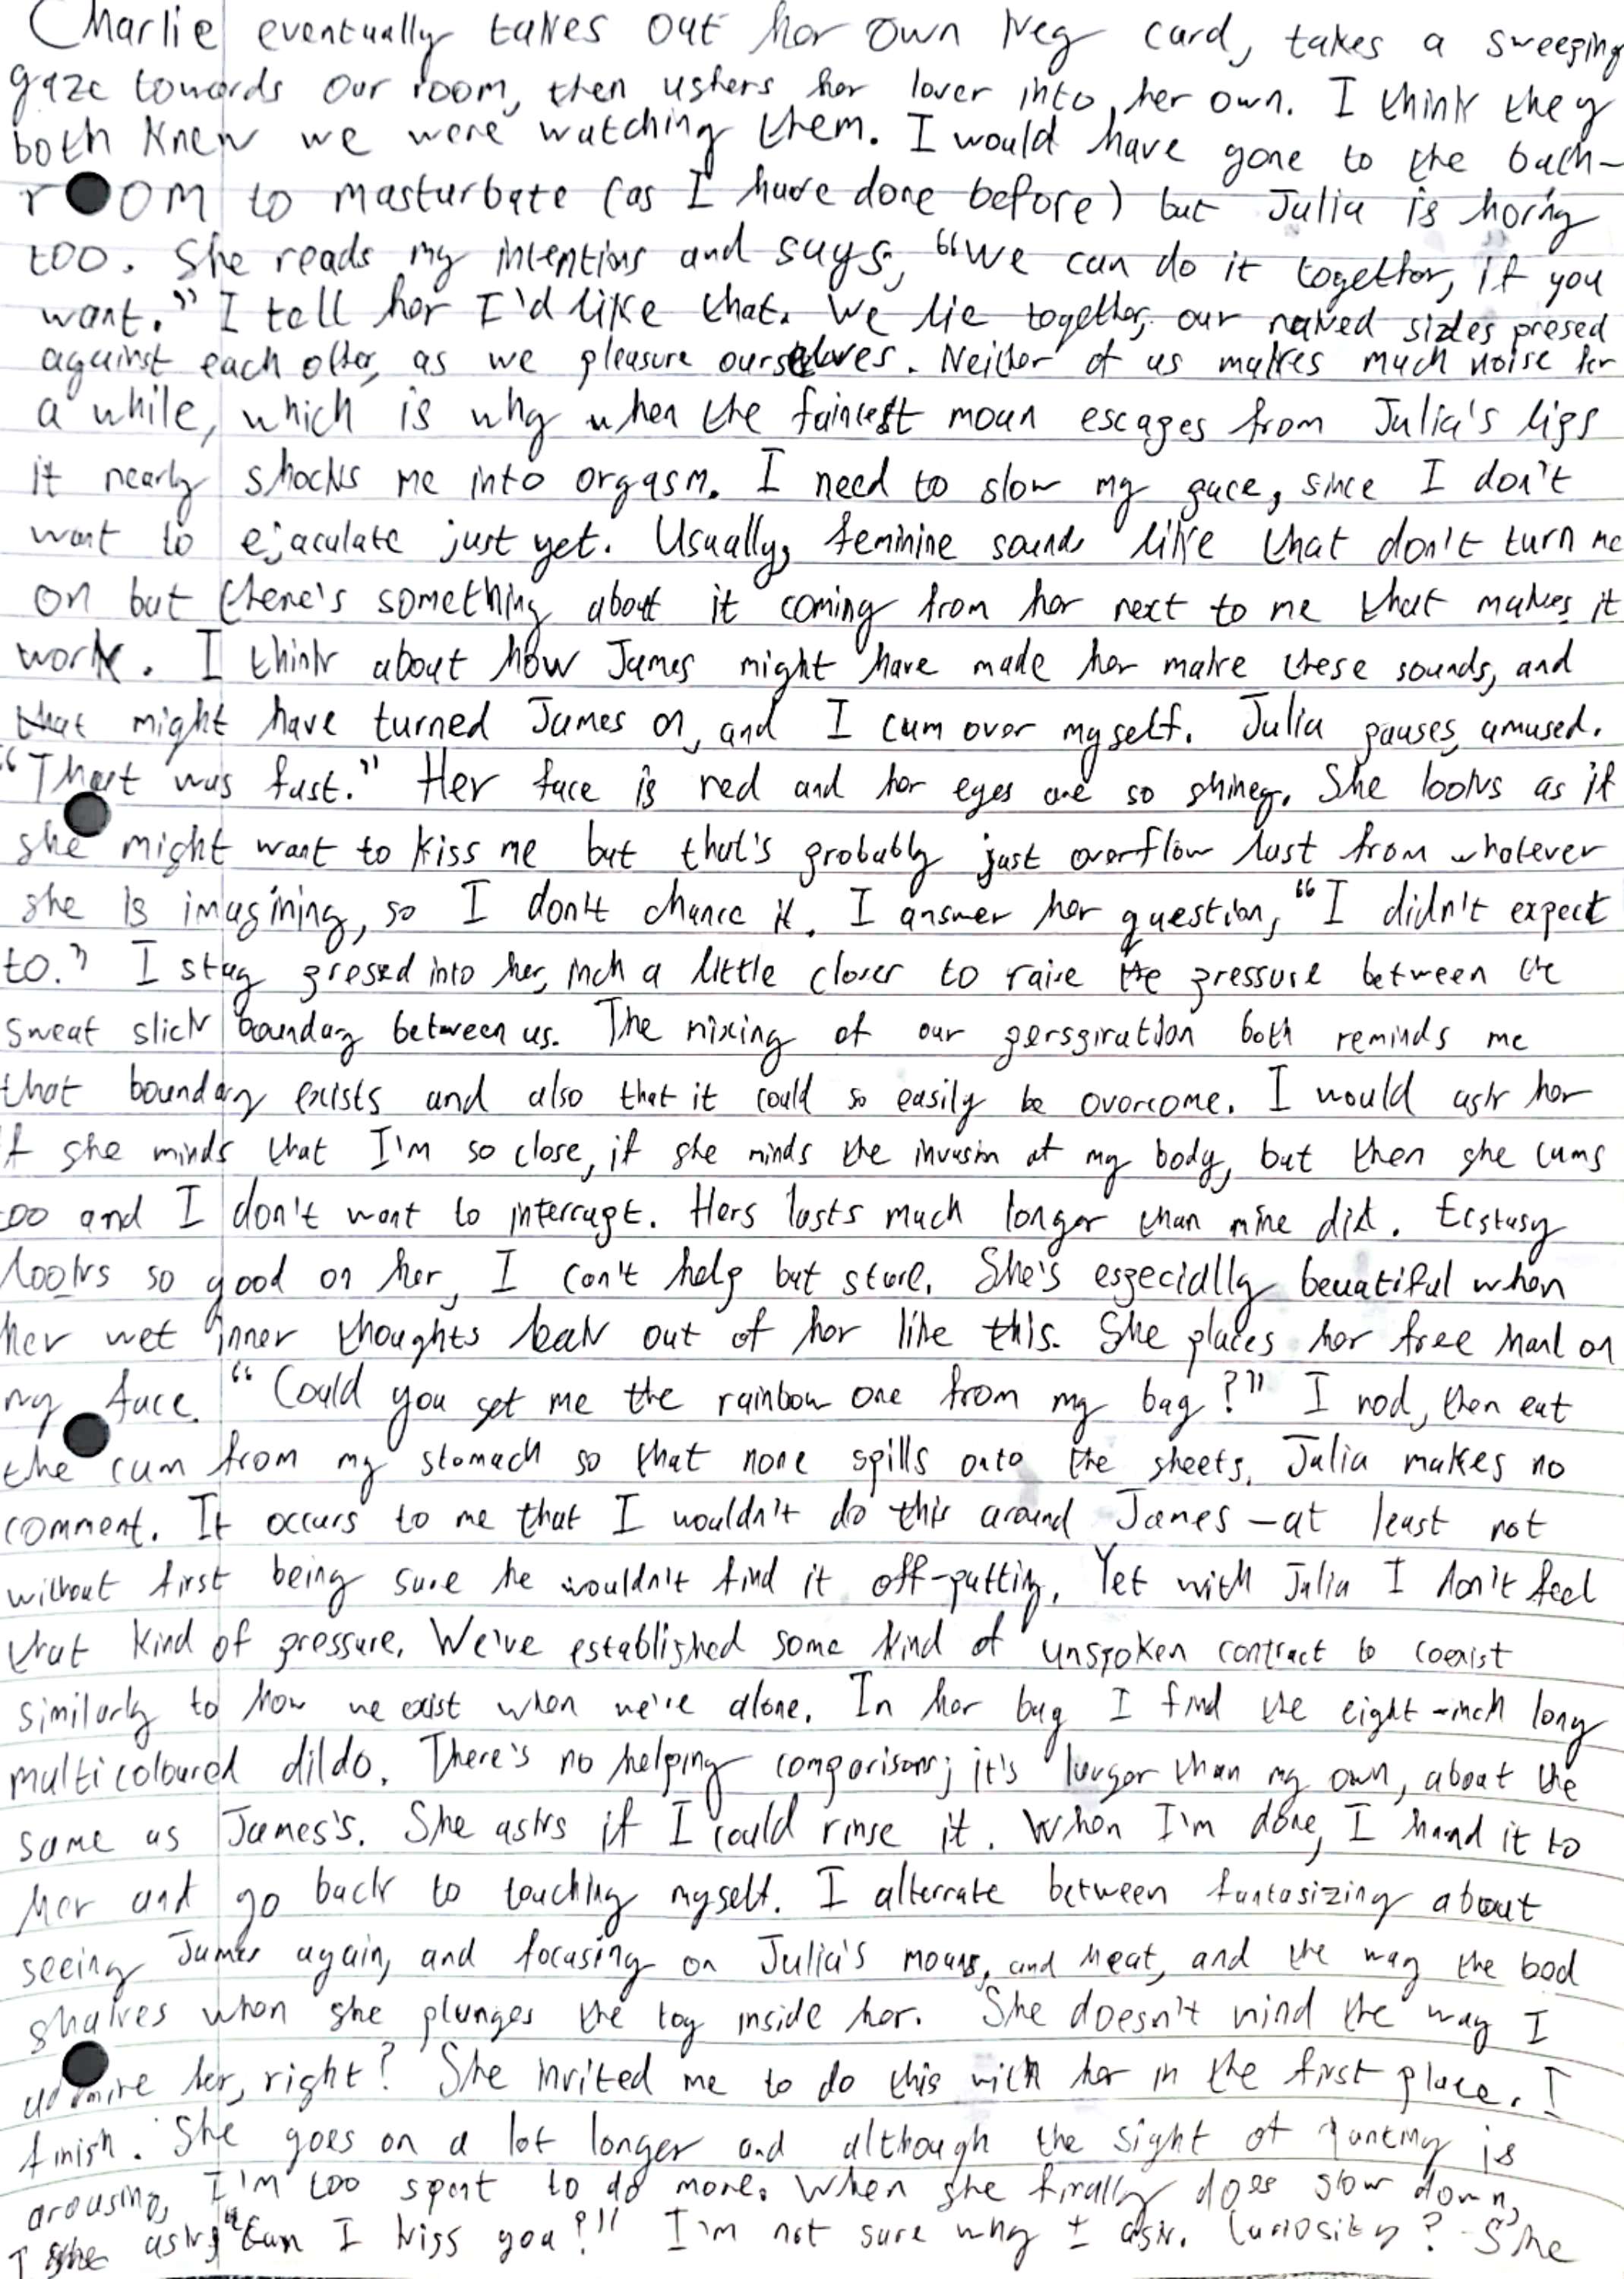 Charlie eventually takes out her own key card, takes a sweeping
gaze towards our room, then ushers her lover into her own. I think they
both knew we were watching them. I would have gone to the bath-
room to masturbate (as I have done before) but Julia is horny
too. She reads my intentions and says, "We can do it together, if you
want." I tell her I'd like that. We lie together, our naked sides presed
against each other, as we pleasure ourselves. Neither of us makes much noise for
a while, which is why when the faintest moan escapes from Julia's lips
it nearly shocks me into orgasm. I need to slow my pace, since I don't
want to ejaculate just yet. Usually, feminine sounds like that don't turn me
on but there's something about it coming from her next to me that makes it
work. I think about how James might have made her make these sounds, and
that might have turned James on, and I cum over myself. Julia pauses, amused.
"That was fast." Her face is red and her eyes are so shiney. She looks as if
she might want to kiss me but that's probably just overflow lust from whatever
she is imagining, so I don't chance it. I answer her question, "I didn't expect
to." I stay presed into her, inch a little closer to raise the pressure between the
sweat slick boundary between us. The mixing of our perspiration both reminds me
that boundary exists and also that it could so easily be overcome. I would ask her
if she minds that I'm so close, if she minds the invasion of my body, but then she cums
too and I don't want to interrupt. Hers lasts much longer than mine did. Ecstasy
looks so good on her, I can't help but stare. She's especially beuatiful when
her wet inner thoughts leak out of her like this. She places her free hand on
my face. "Could you get me the rainbow one from my bag?" I nod, then eat
the cum from my stomach so that none spills onto the sheets. Julia makes no
comment. It occurs to me that I wouldn't do this around James – at least not
without first being sure he wouldn't find it off-putting. Yet with Julia I don't feel
that kind of pressure. We've established some kind of unspoken contract to coexist
similarly to how we exist when we're alone. In her bag I find the eight-inch long
multicoloured dildo. There's no helping comparison; it's larger than my own, about the
same as James's. She asks if I could rinse it. When I'm done, I hand it to
her and go back to touching myself. I alternate between fantasizing about
seeing James again, and focusing on Julia's moans, and heat, and the way the bed
shakes when she plunges the toy inside her. She doesn't mind the way I
admire her, right? She invited me to do this with her in the first place. I
finish. She goes on a lot longer and although the sight of panting is
arousing, I'm too spent to do more. When she finally does slow down,
I ask, "Can I kiss you?" I'm not sure why I ask. Curiosity? She